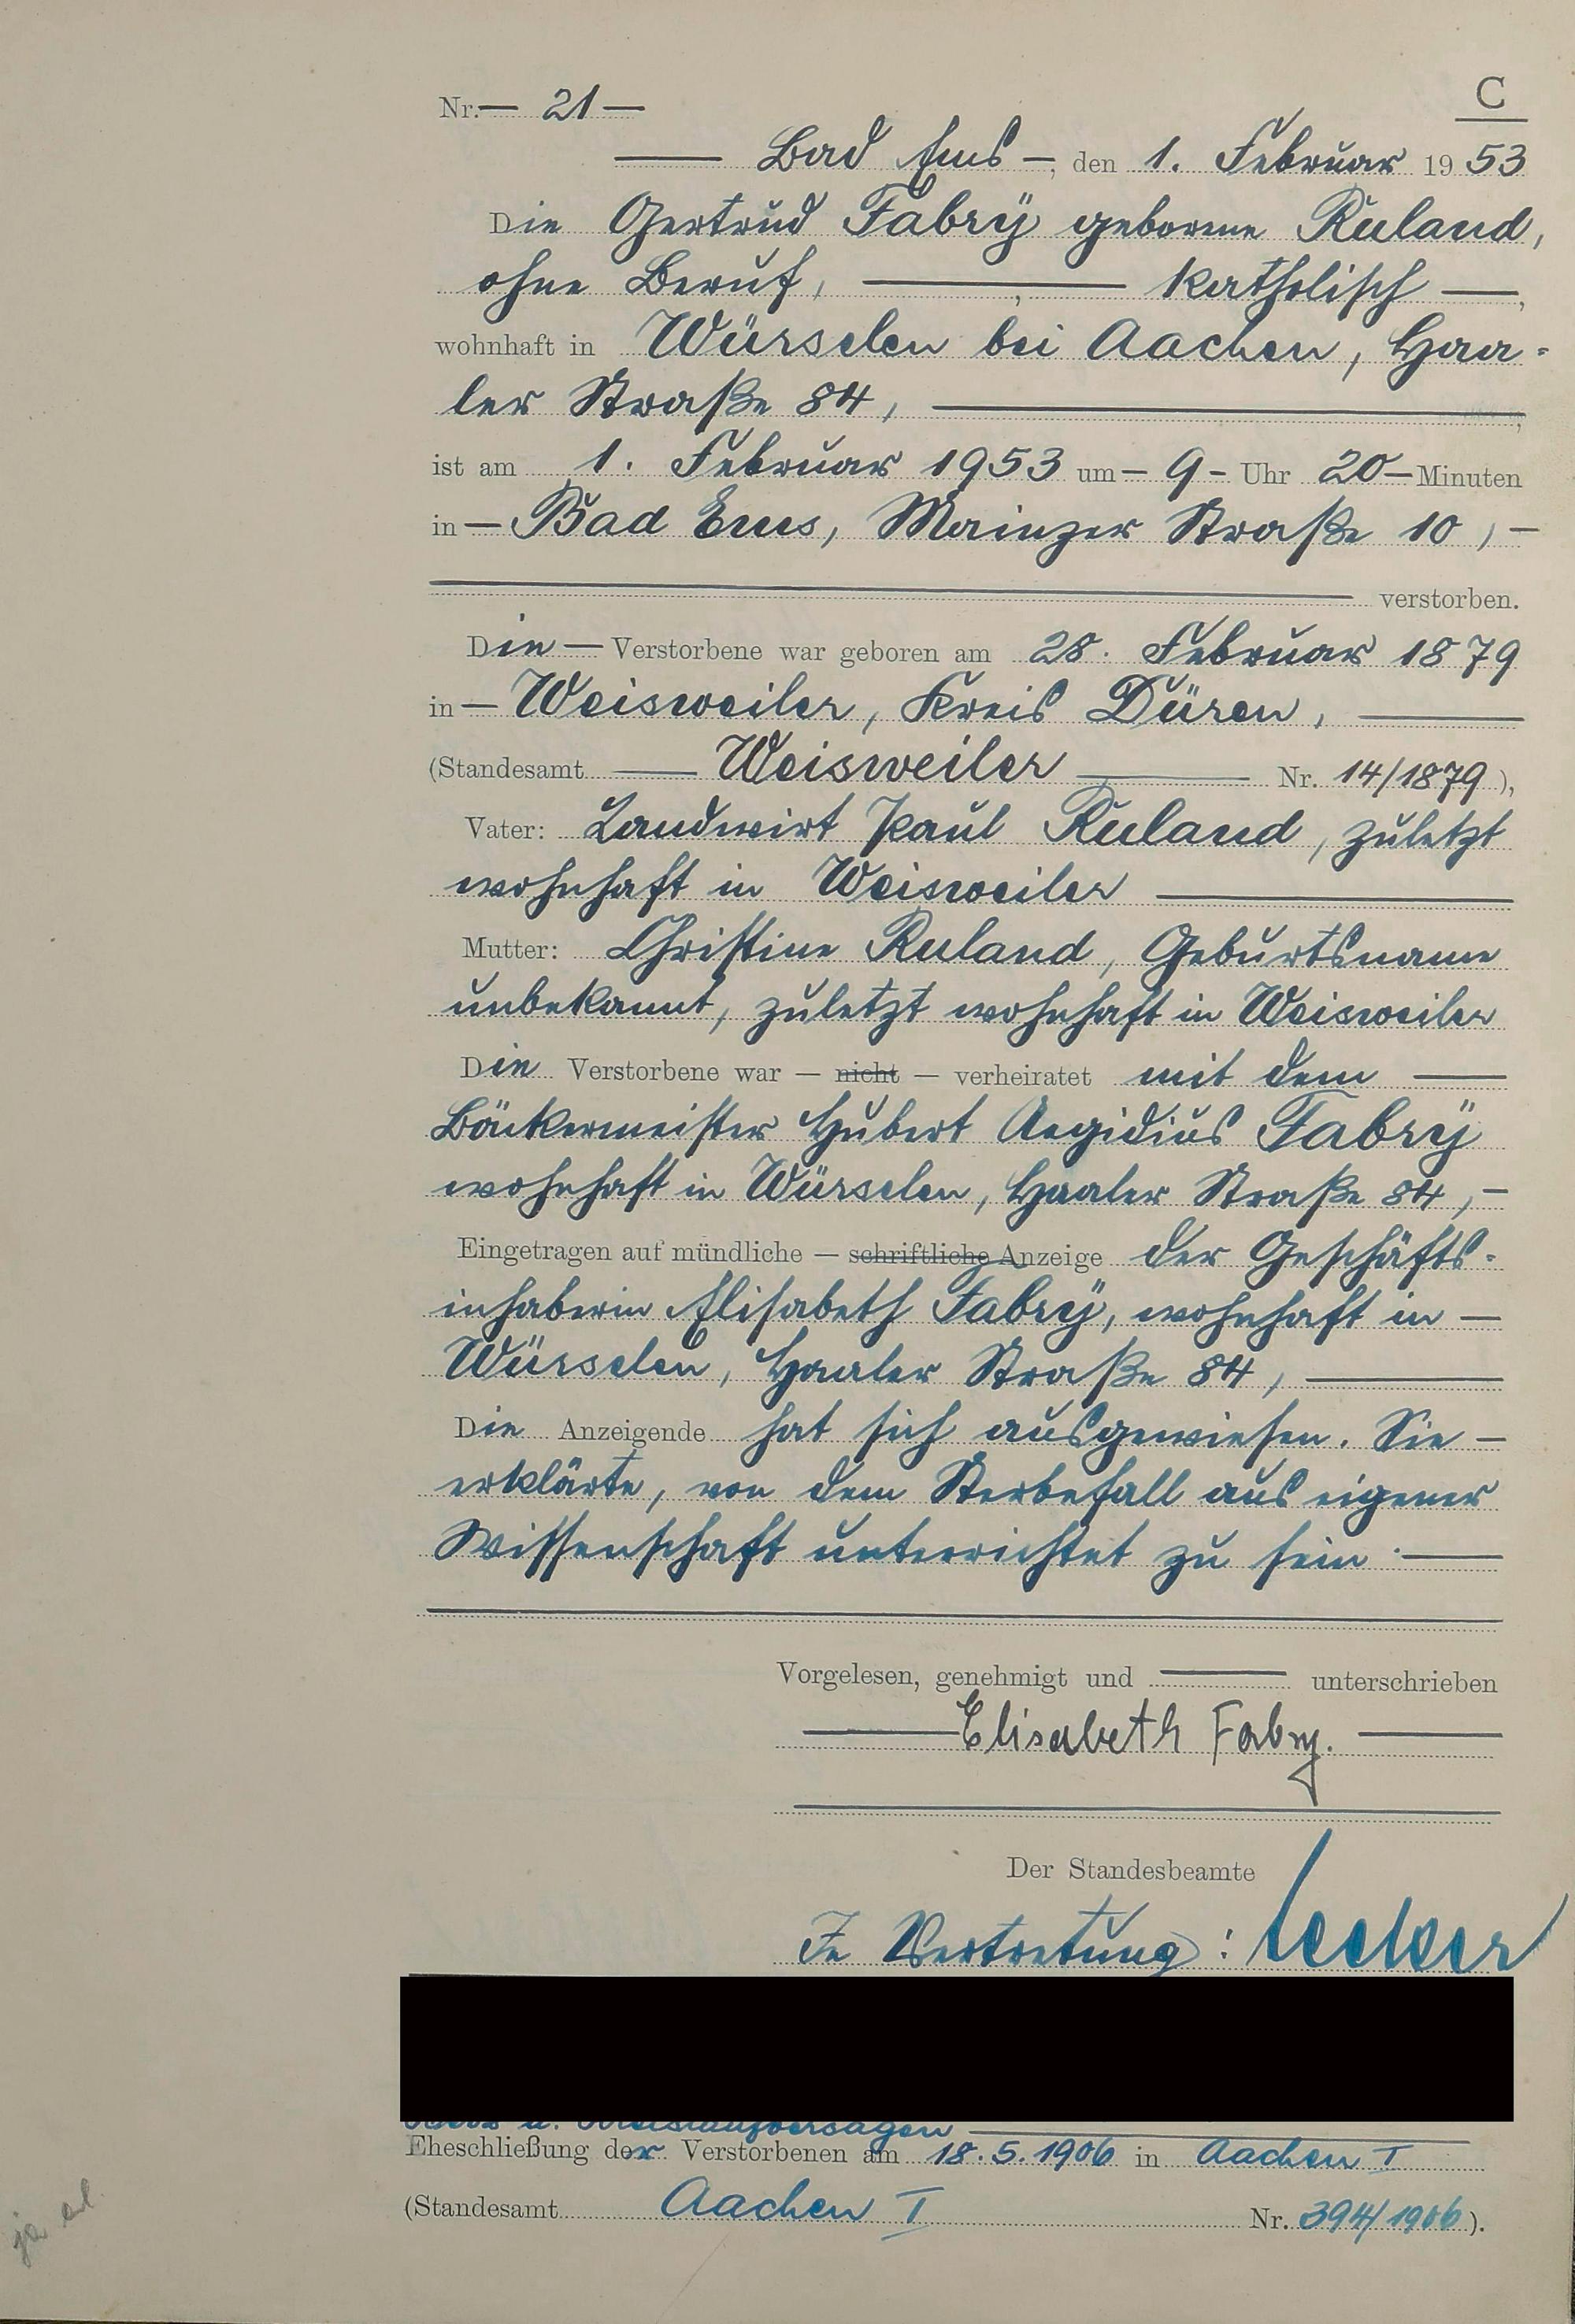 C
Nr. — 21 —
— Bad Ems —, den 1. Februar 1953
Die Gertrud Fabry geborene Ruland,
ohne Beruf, — , — katholisch —,
wohnhaft in Würselen bei Aachen, Haa-
ler Straße 84, —
ist am 1. Februar 1953 um — 9 — Uhr 20 — Minuten
in — Bad Ems, Mainzer Straße 10, —
— verstorben.
Die — Verstorbene war geboren am 28. Februar 1879
in — Weisweiler, Kreis Düren, —
(Standesamt — Weisweiler — Nr. 14/1879),
Vater: Landwirt Paul Ruland, zuletzt
wohnhaft in Weisweiler —
Mutter: Christine Ruland, Geburtsname
unbekannt, zuletzt wohnhaft in Weisweiler
Die Verstorbene war — nicht — verheiratet mit dem —
Bäckermeister Hubert Aegidius Fabry
wohnhaft in Würselen, Haaler Straße 84, —
Eingetragen auf mündliche — schriftliche Anzeige der Geschäfts-
inhaberin Elisabeth Fabry, wohnhaft in —
Würselen, Haaler Straße 84, —
Die Anzeigende hat sich ausgewiesen. Sie —
erklärte, von dem Sterbefall aus eigener
Wissenschaft unterrichtet zu sein. —
Vorgelesen, genehmigt und — unterschrieben
— Elisabeth Fabry. —
Der Standesbeamte
In Vertretung:
u. Kreislaufversagen —
Eheschließung der Verstorbenen am 18.5.1906 in Aachen I
(Standesamt Aachen I Nr. 394/1906).